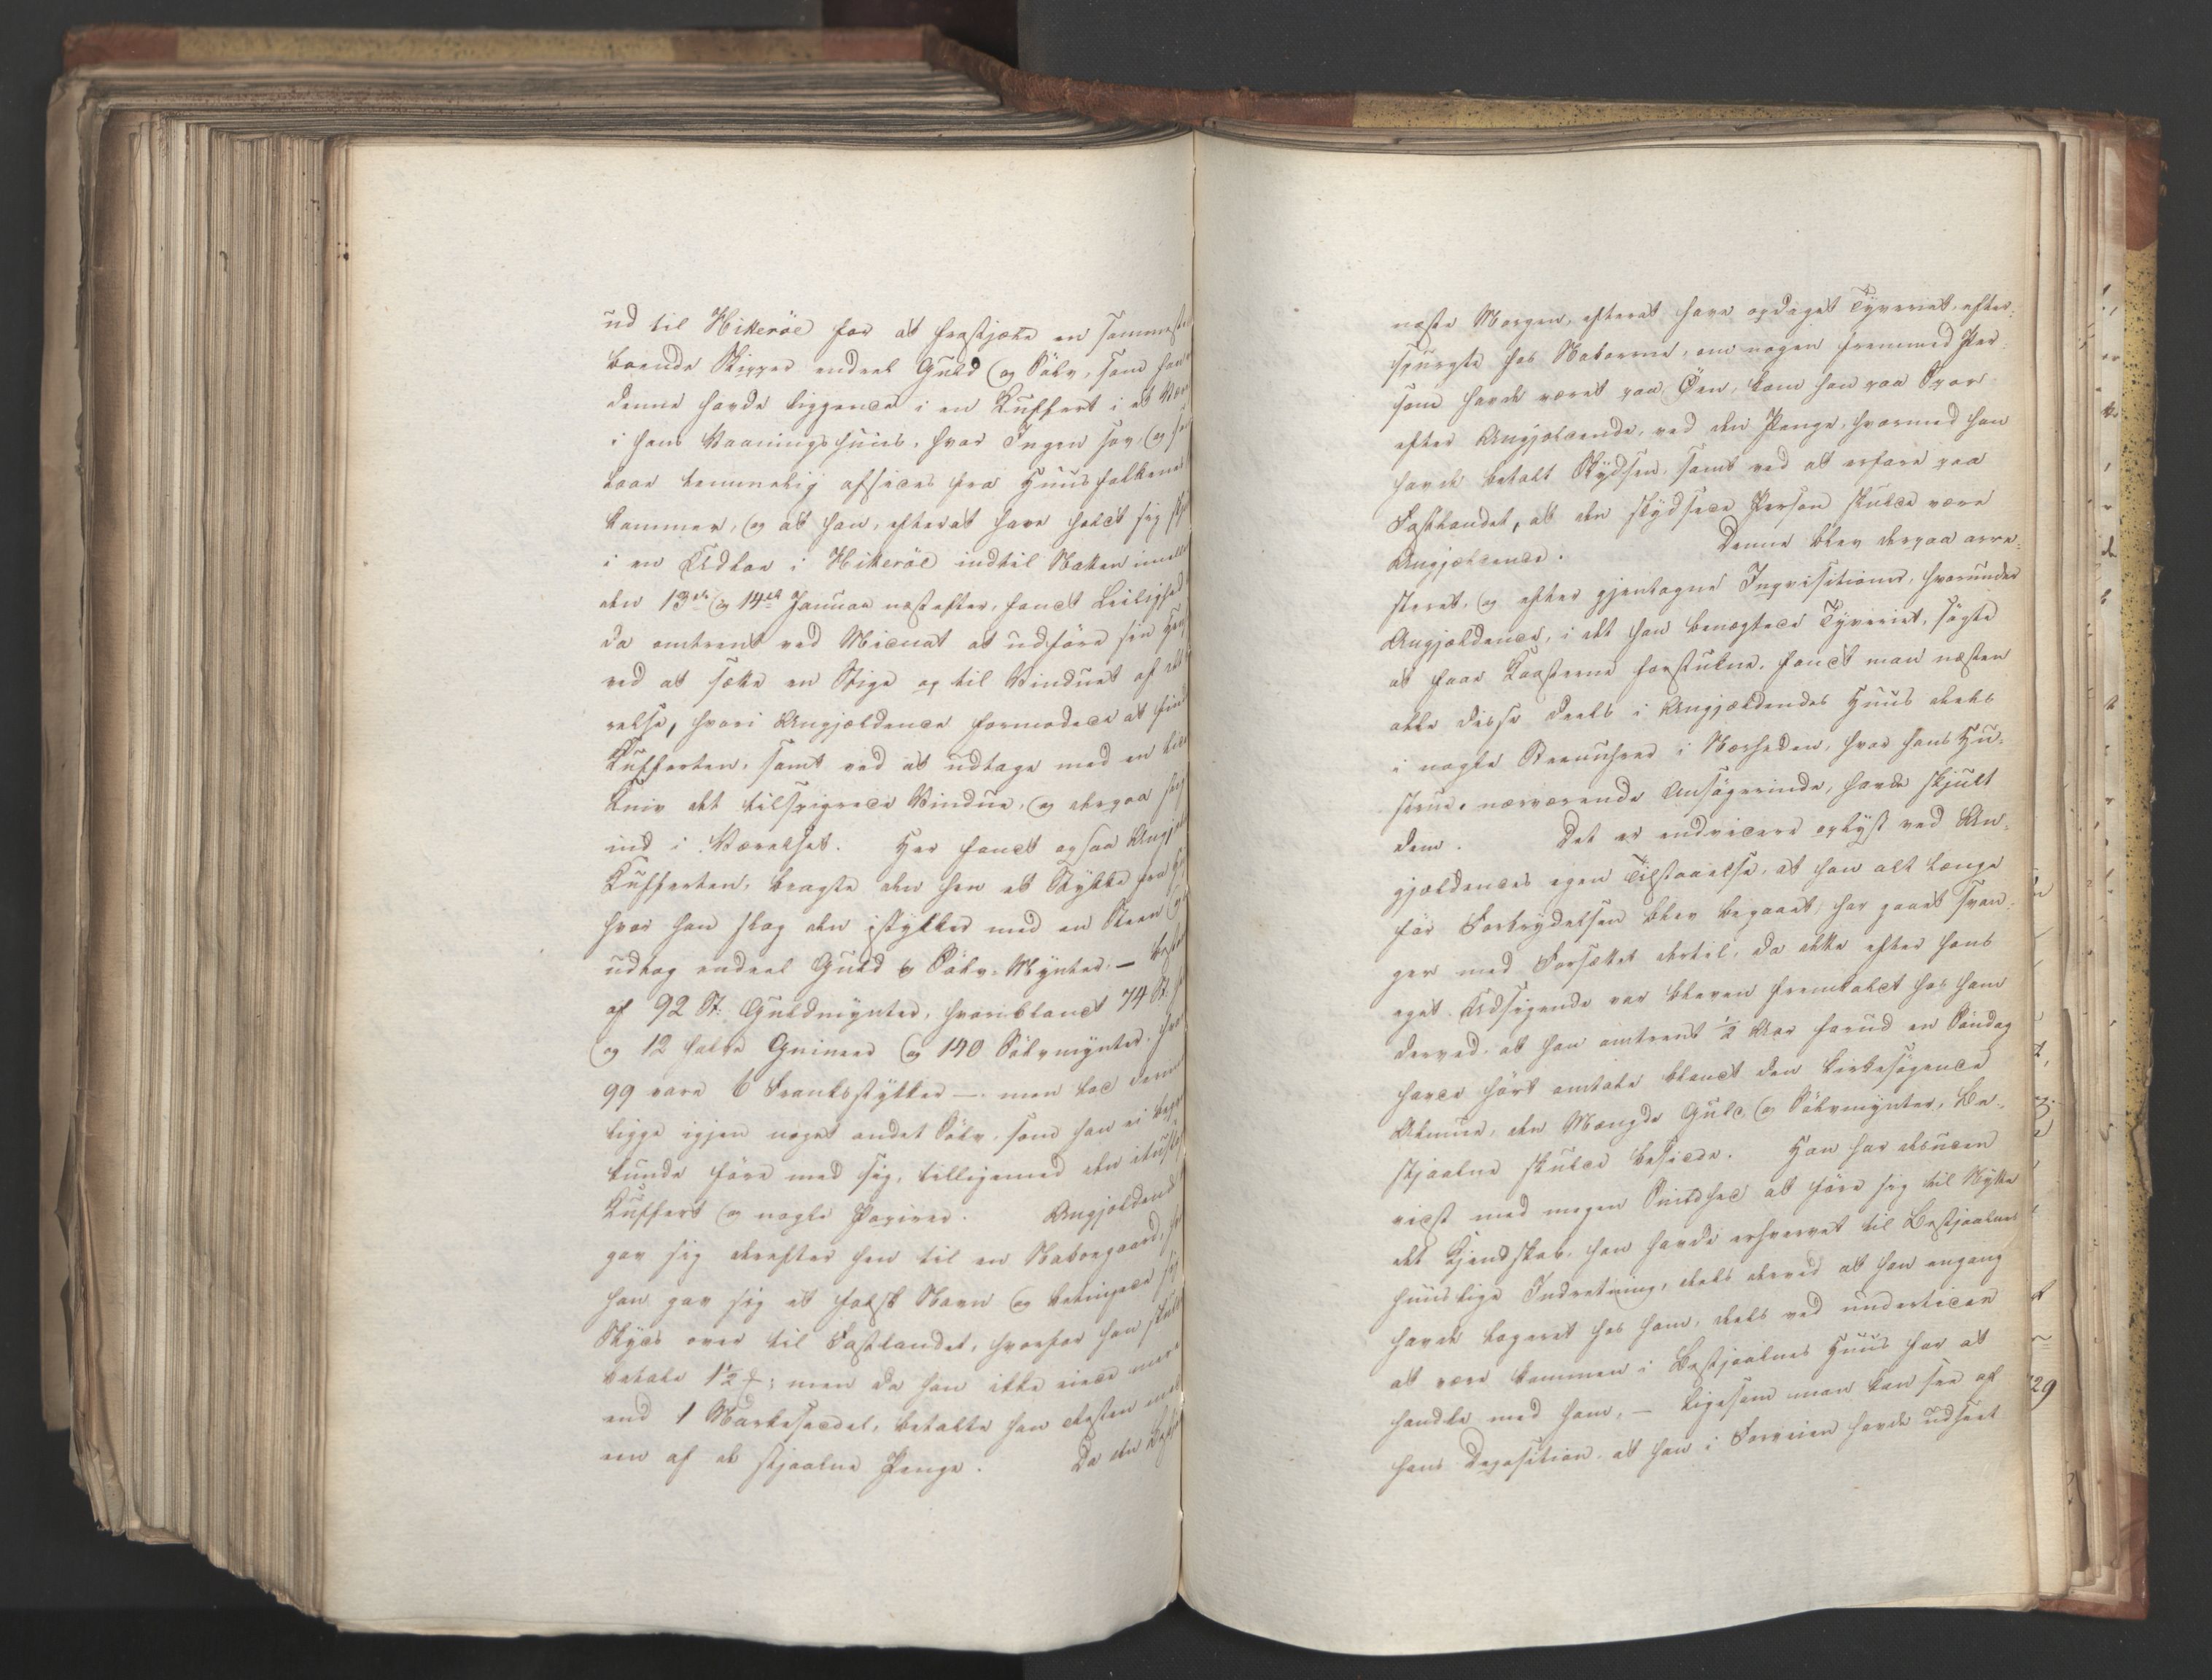 ud til Hitteröe for at frastjæle en sammesteds
boende Skipper endeel Guld og Sölv, som han
denne havde liggende i en Kuffert i et Vær
i hans Vaaningshuus, hvor Ingen sov, og som
laae temmelig afsides fra Huusfolkenes
kammer, og at han, efterat have holdt sig skjult
i en Udlae i Hitteröe indtil Natten imellem
den 13de og 14de Januar næstefter, fandt Leilighed
da omtrent ved Midnat at udföre sin Hen
ved at sætte en Stige op til Vinduet af det Væ
relse, hvori Angjældende formodede at finde
Kufferten, samt ved at udtage med en liden
Kniv det tilspigrede Vindue, og derpaa steg
ind i Værelset. Her fandt ogsaa Angjæl
Kufferten, bragte den hen et Stykke fra Hu
hvor han slog den istykker med en Steen og
udtog endeel Guld og Sölv-Mynter, — best
af 92 St. Guldmynter, hvoriblandt 74
og 12 halve Guineer og 140 Sölvmynter, hvor
99 vare 6 Frankstykker —, men lod derimod
ligge igjen noget andet Sölv, som han ei beqv
kunde före med sig, tilligemed den itusl
Kuffert og nogle Papirer. Angjældende
gav sig derefter hen til en Nabogaard, hvor
han gav sig et falsk Navn og betingede sig
Skyds over til Fastlandet, hvorfor han skulle
betale 1½ ; men da han ikke eiede mere
end 1 Markseddel, betalte han Resten med
een af de stjaalne Penge. Da den Bestj
næste Morgen, efterat have opdaget Tyveriet, efter-
spurgte hos Naboerne, om nogen fremmed Per-
son havde været paa Öen, kom han paa Spor
efter Angjældende, ved den Penge, hvormed han
havde betalt Skydsen, samt ved at erfare paa
Fastlandet, at den skydsede Person skulde være
Angjældende. Denne blev derpaa arre-
steret, og efter gjentagne Inqvisitioner, hvorunder
Angjældende, i det han benægtede Tyveriet, sögte
at faae Kosterne forstukne, fandt man næsten
alle disse deels i Angjældendes Huus deels
i nogle Steenuhrer i Nærheden, hvor hans Hu-
strue, nærværende Ansögerinde, havde skjult
dem. Det er endvidere oplyst ved An-
gjældendes egen Tilstaaelse, at han alt længe
för Forbrydelsen blev begaaet, har gaaet svan-
ger med Forsættet dertil, da dette efter hans
eget Udsigende var bleven fremkaldt hos ham
derved, at han omtrent ½ Aar forud en Söndag
havde hört omtale blandt den kirkesögende
Almue, den Mængde Guld og Sölvmynter, Be-
stjaalne skulde besidde. Han har desuden
viist med megen Sniildhed at före sig til Nytte
det Kjendskab, han havde erhvervet til Bestjaalnes
huuslige Indretning, deels derved at han engang
havde logeret hos ham, deels ved undertiden
at være kommen i Bestjaalnes Huus for at
handle med ham, — ligesom man kan see af
hans Deposition, at han i Forveien havde udseet